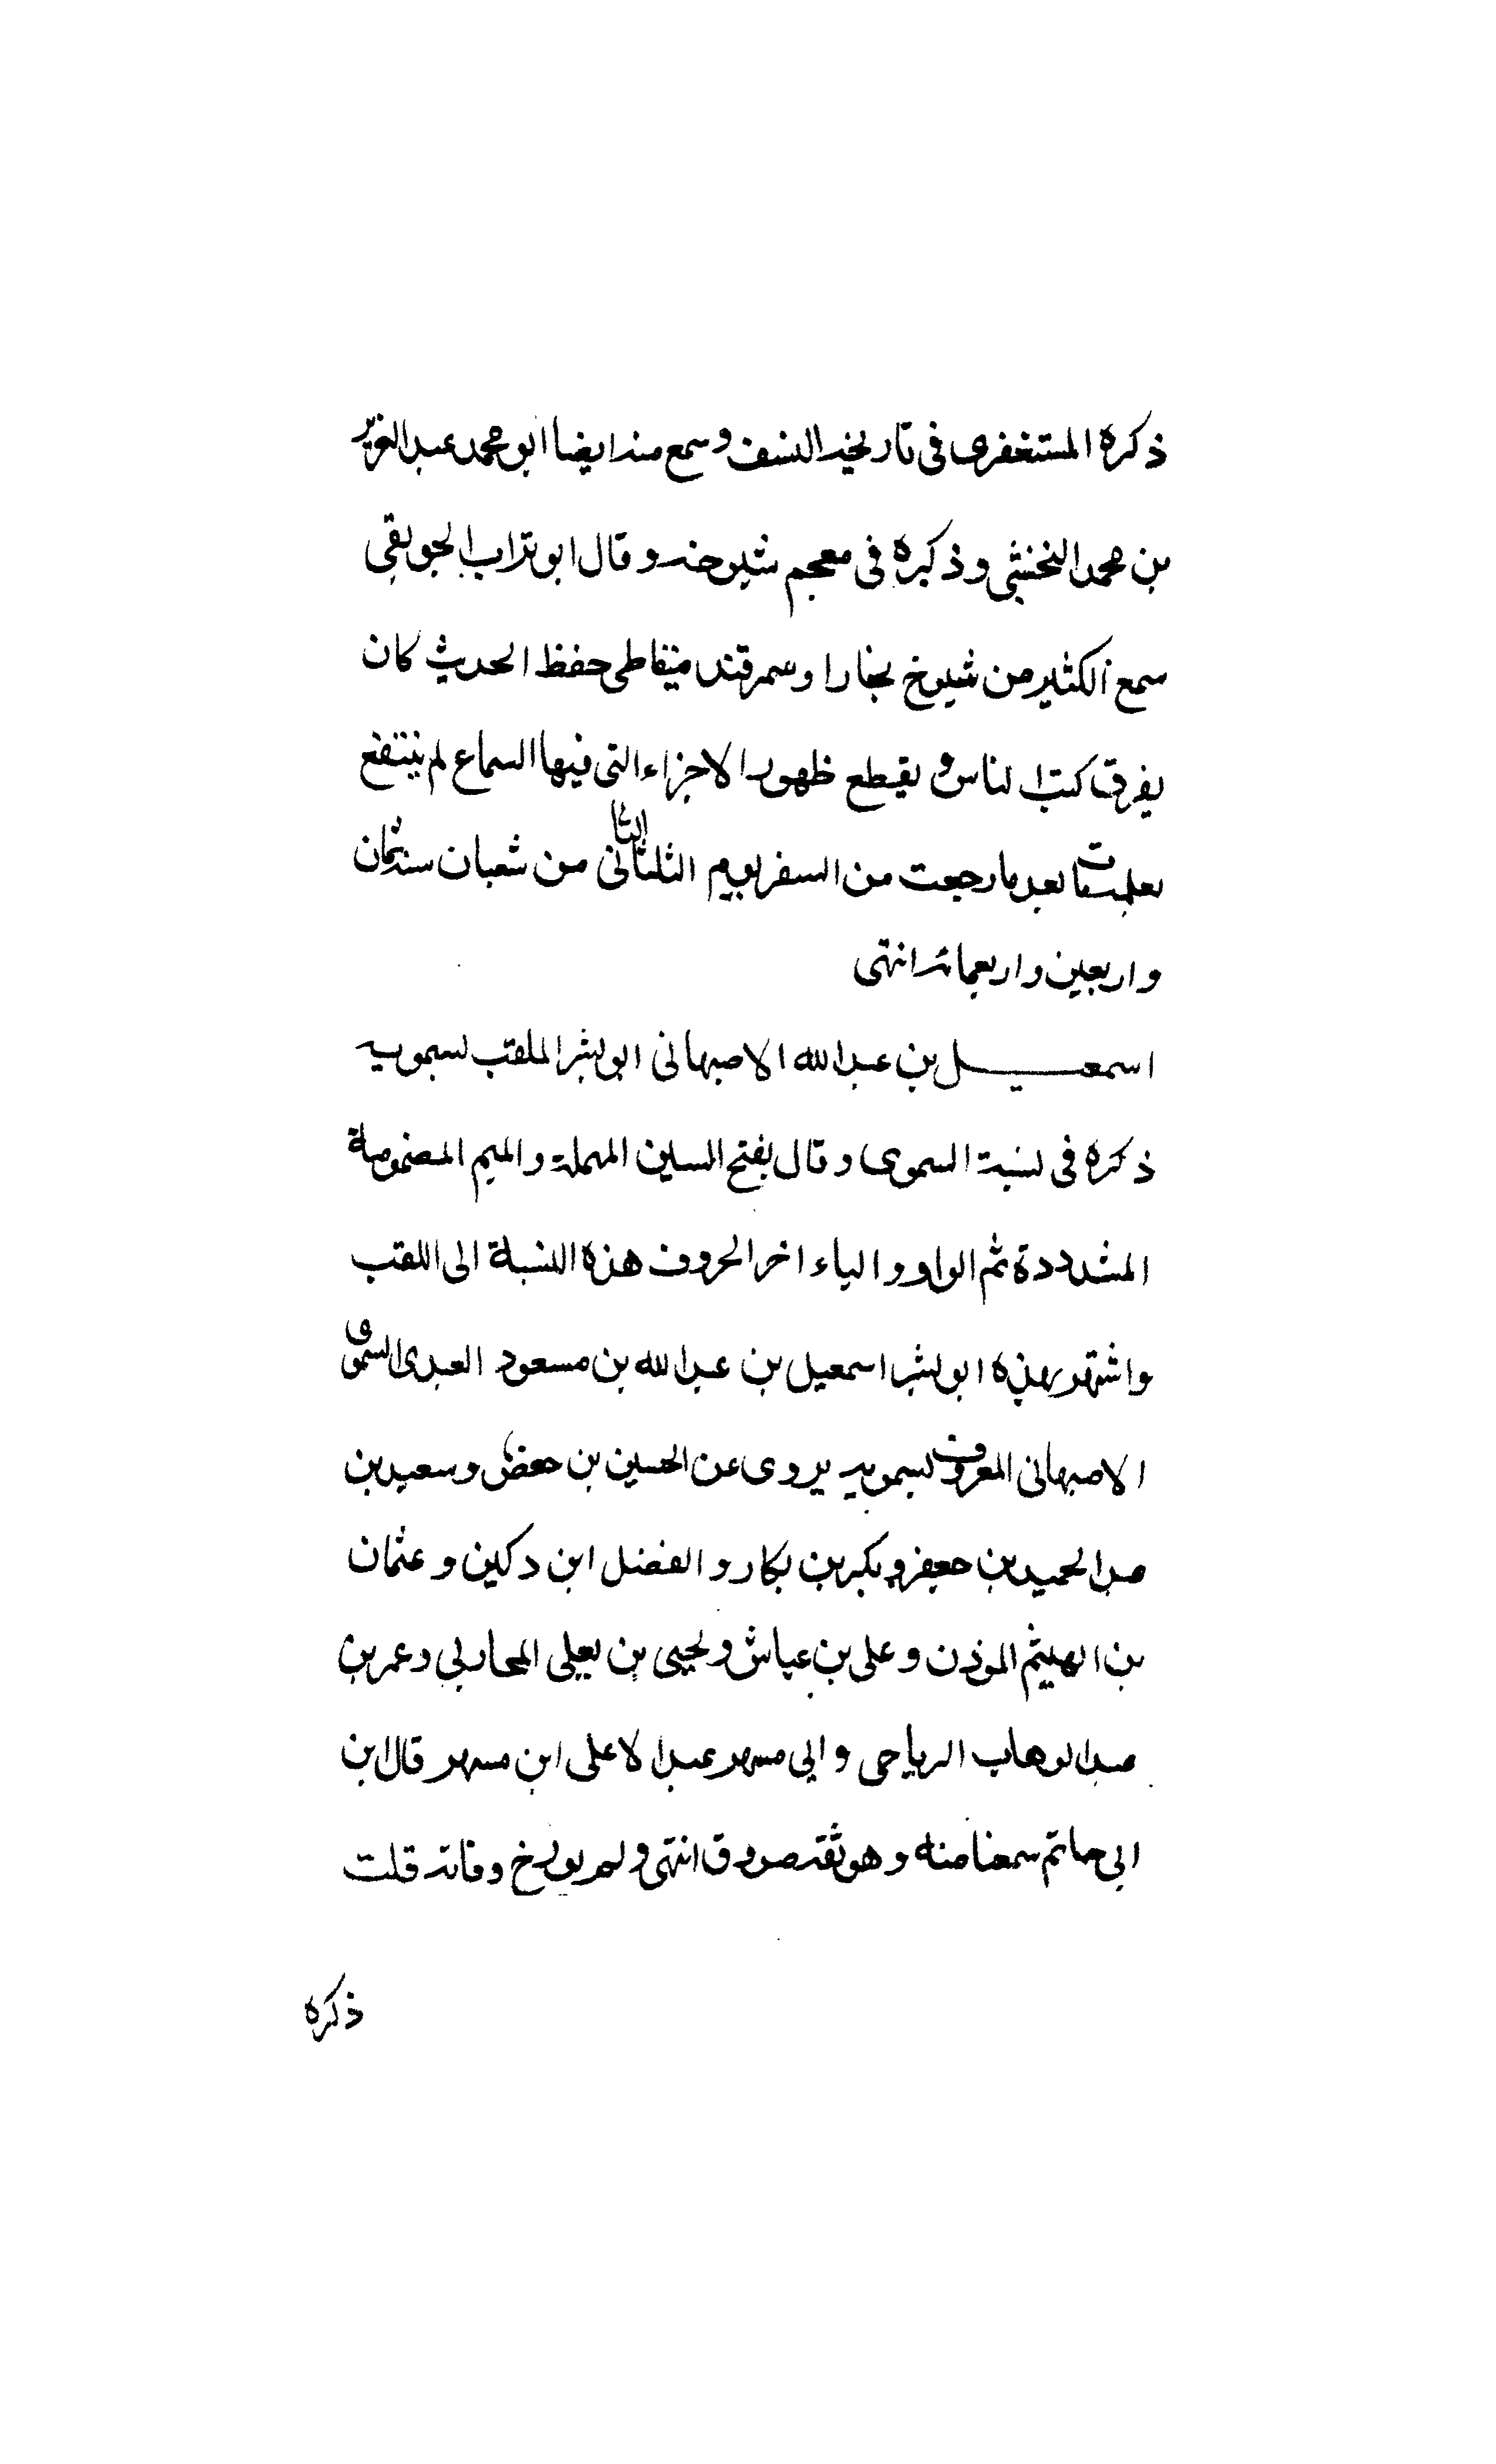 ذكره المستغفرى فى تاريخه النسف وسمع منه ايضا ابو محمد عبد العزيز
بن محمد النخشبى وذكره فى معجم شيوخه وقال ابو تراب الجوبقى
سمع الكثير من شيوخ بخارا وسمرقند حفظ الحديث كان
يفرق كتب الناس و يقطع ظهور الاجزاء التى فيها السماع لم ينتفع
بعلمه مات بعد ما رجعت من السفر يوم الثلثا الثانى من شعبان سنة ثمان
واربعين واربعمائه انتهى
اسمعيل بن عبد الله الاصبهانى ابو بشر الملقب بسمويه
ذكره فى نسبة السموى وقال بفتح السين المهملة والميم المضمومة
المشددة ثم الواو والياء اخر الحروف هذه النسبة الى اللقب
واشتهر بهذه ابو بشر اسمعيل بن عبد الله بن مسعود العبدى السموى
الاصبهانى المعروف بسمويه يروى عن الحسين بن حفص وسعيد بن
عبد الحميد بن جعفر وبكر بن بكار والفضل ابن دكين وعثمان
بن الهيثم الموذن وعلى بن عياش ويحيى بن يعلى المحاربى وعمر بن
عبد الوهاب الرياحى وابى مسهر عبد الاعلى ابن مسهر قال ابن
ابى حاتم سمعنا منه وهو ثقه صدوق انتهى ولم يورخ وفاته قلت
ذكره